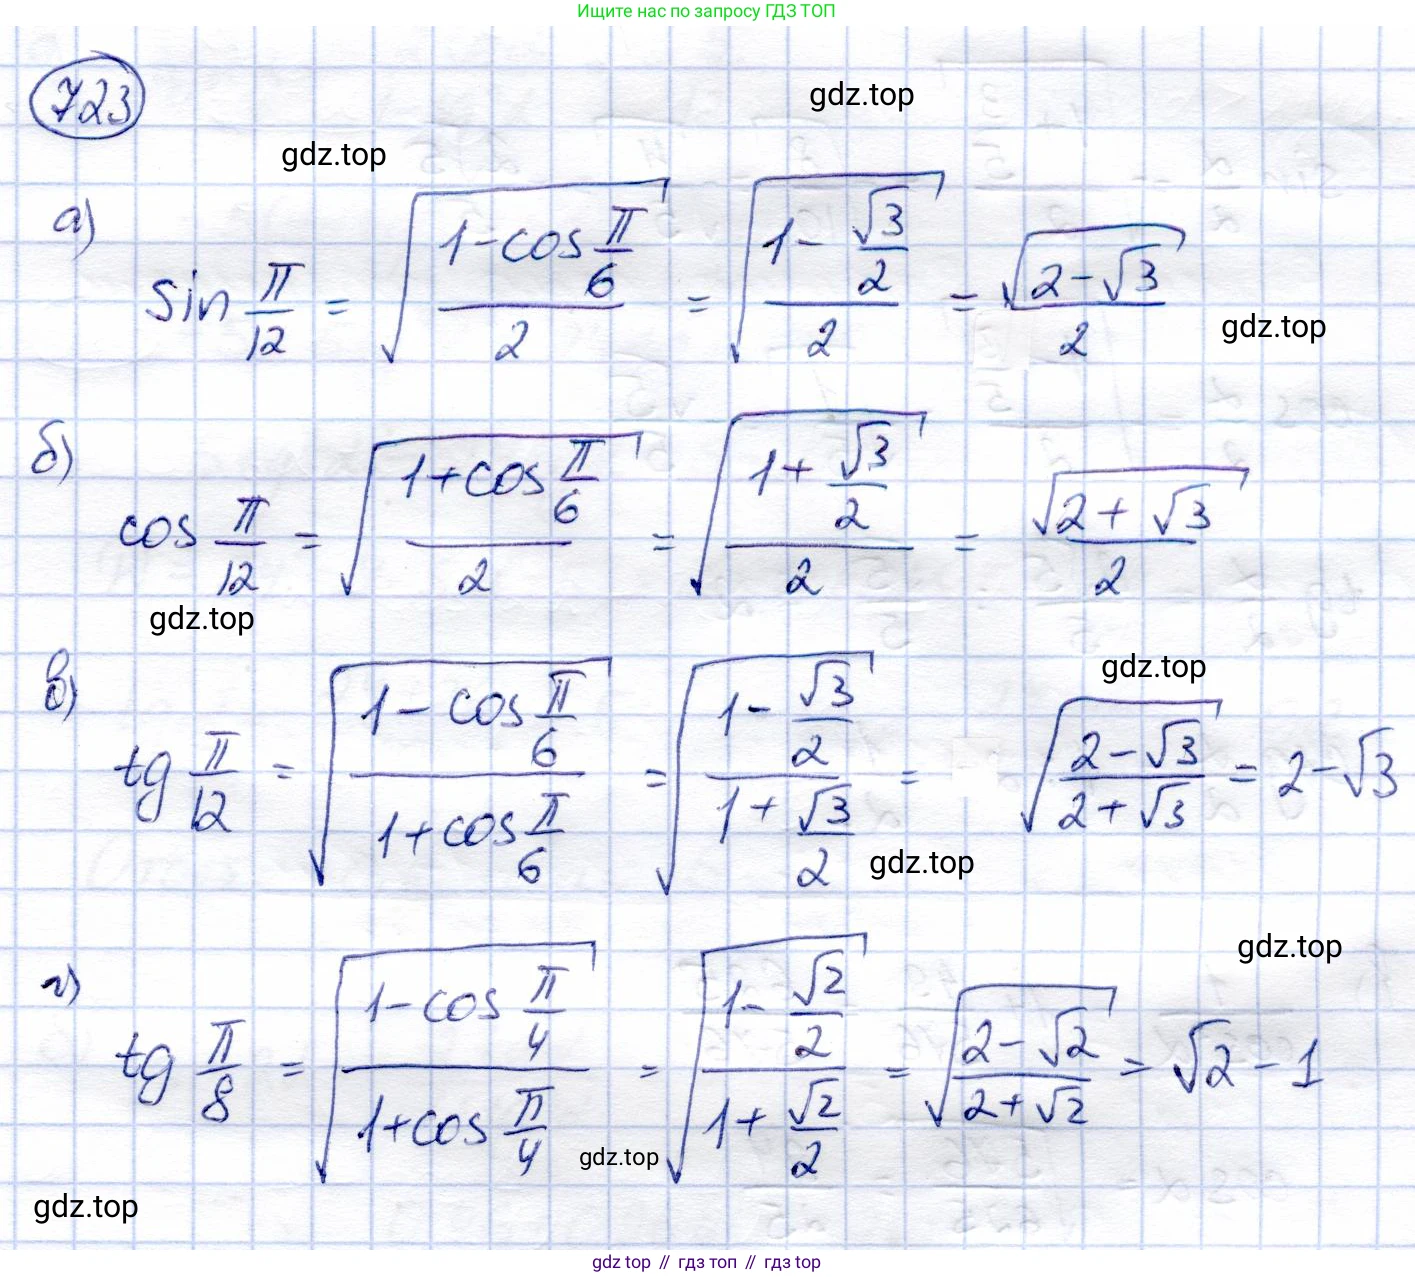 Ищите нас по запросу ГДЗ ТОП
723
gdz.top
gdz.top
а) sin π/12 = √((1 - cos π/6)/2) = √((1 - √3/2)/2) = √(2 - √3)/2
gdz.top
б) cos π/12 = √((1 + cos π/6)/2) = √((1 + √3/2)/2) = √(2 + √3)/2
gdz.top
gdz.top
в) tg π/12 = √((1 - cos π/6)/(1 + cos π/6)) = √((1 - √3/2)/(1 + √3/2)) = √((2 - √3)/(2 + √3)) = 2 - √3
gdz.top
gdz.top
г) tg π/8 = √((1 - cos π/4)/(1 + cos π/4)) = √((1 - √2/2)/(1 + √2/2)) = √((2 - √2)/(2 + √2)) = √2 - 1
gdz.top
gdz.top
gdz top // гдз топ // гдз top